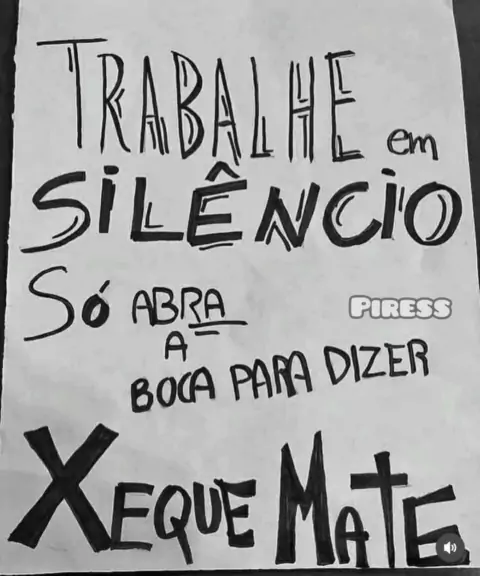 TRABALHE em
SiLÊNCiO
Só ABRA
PIRESS
A
BOCA PARA DIZER
XEQUE MATE